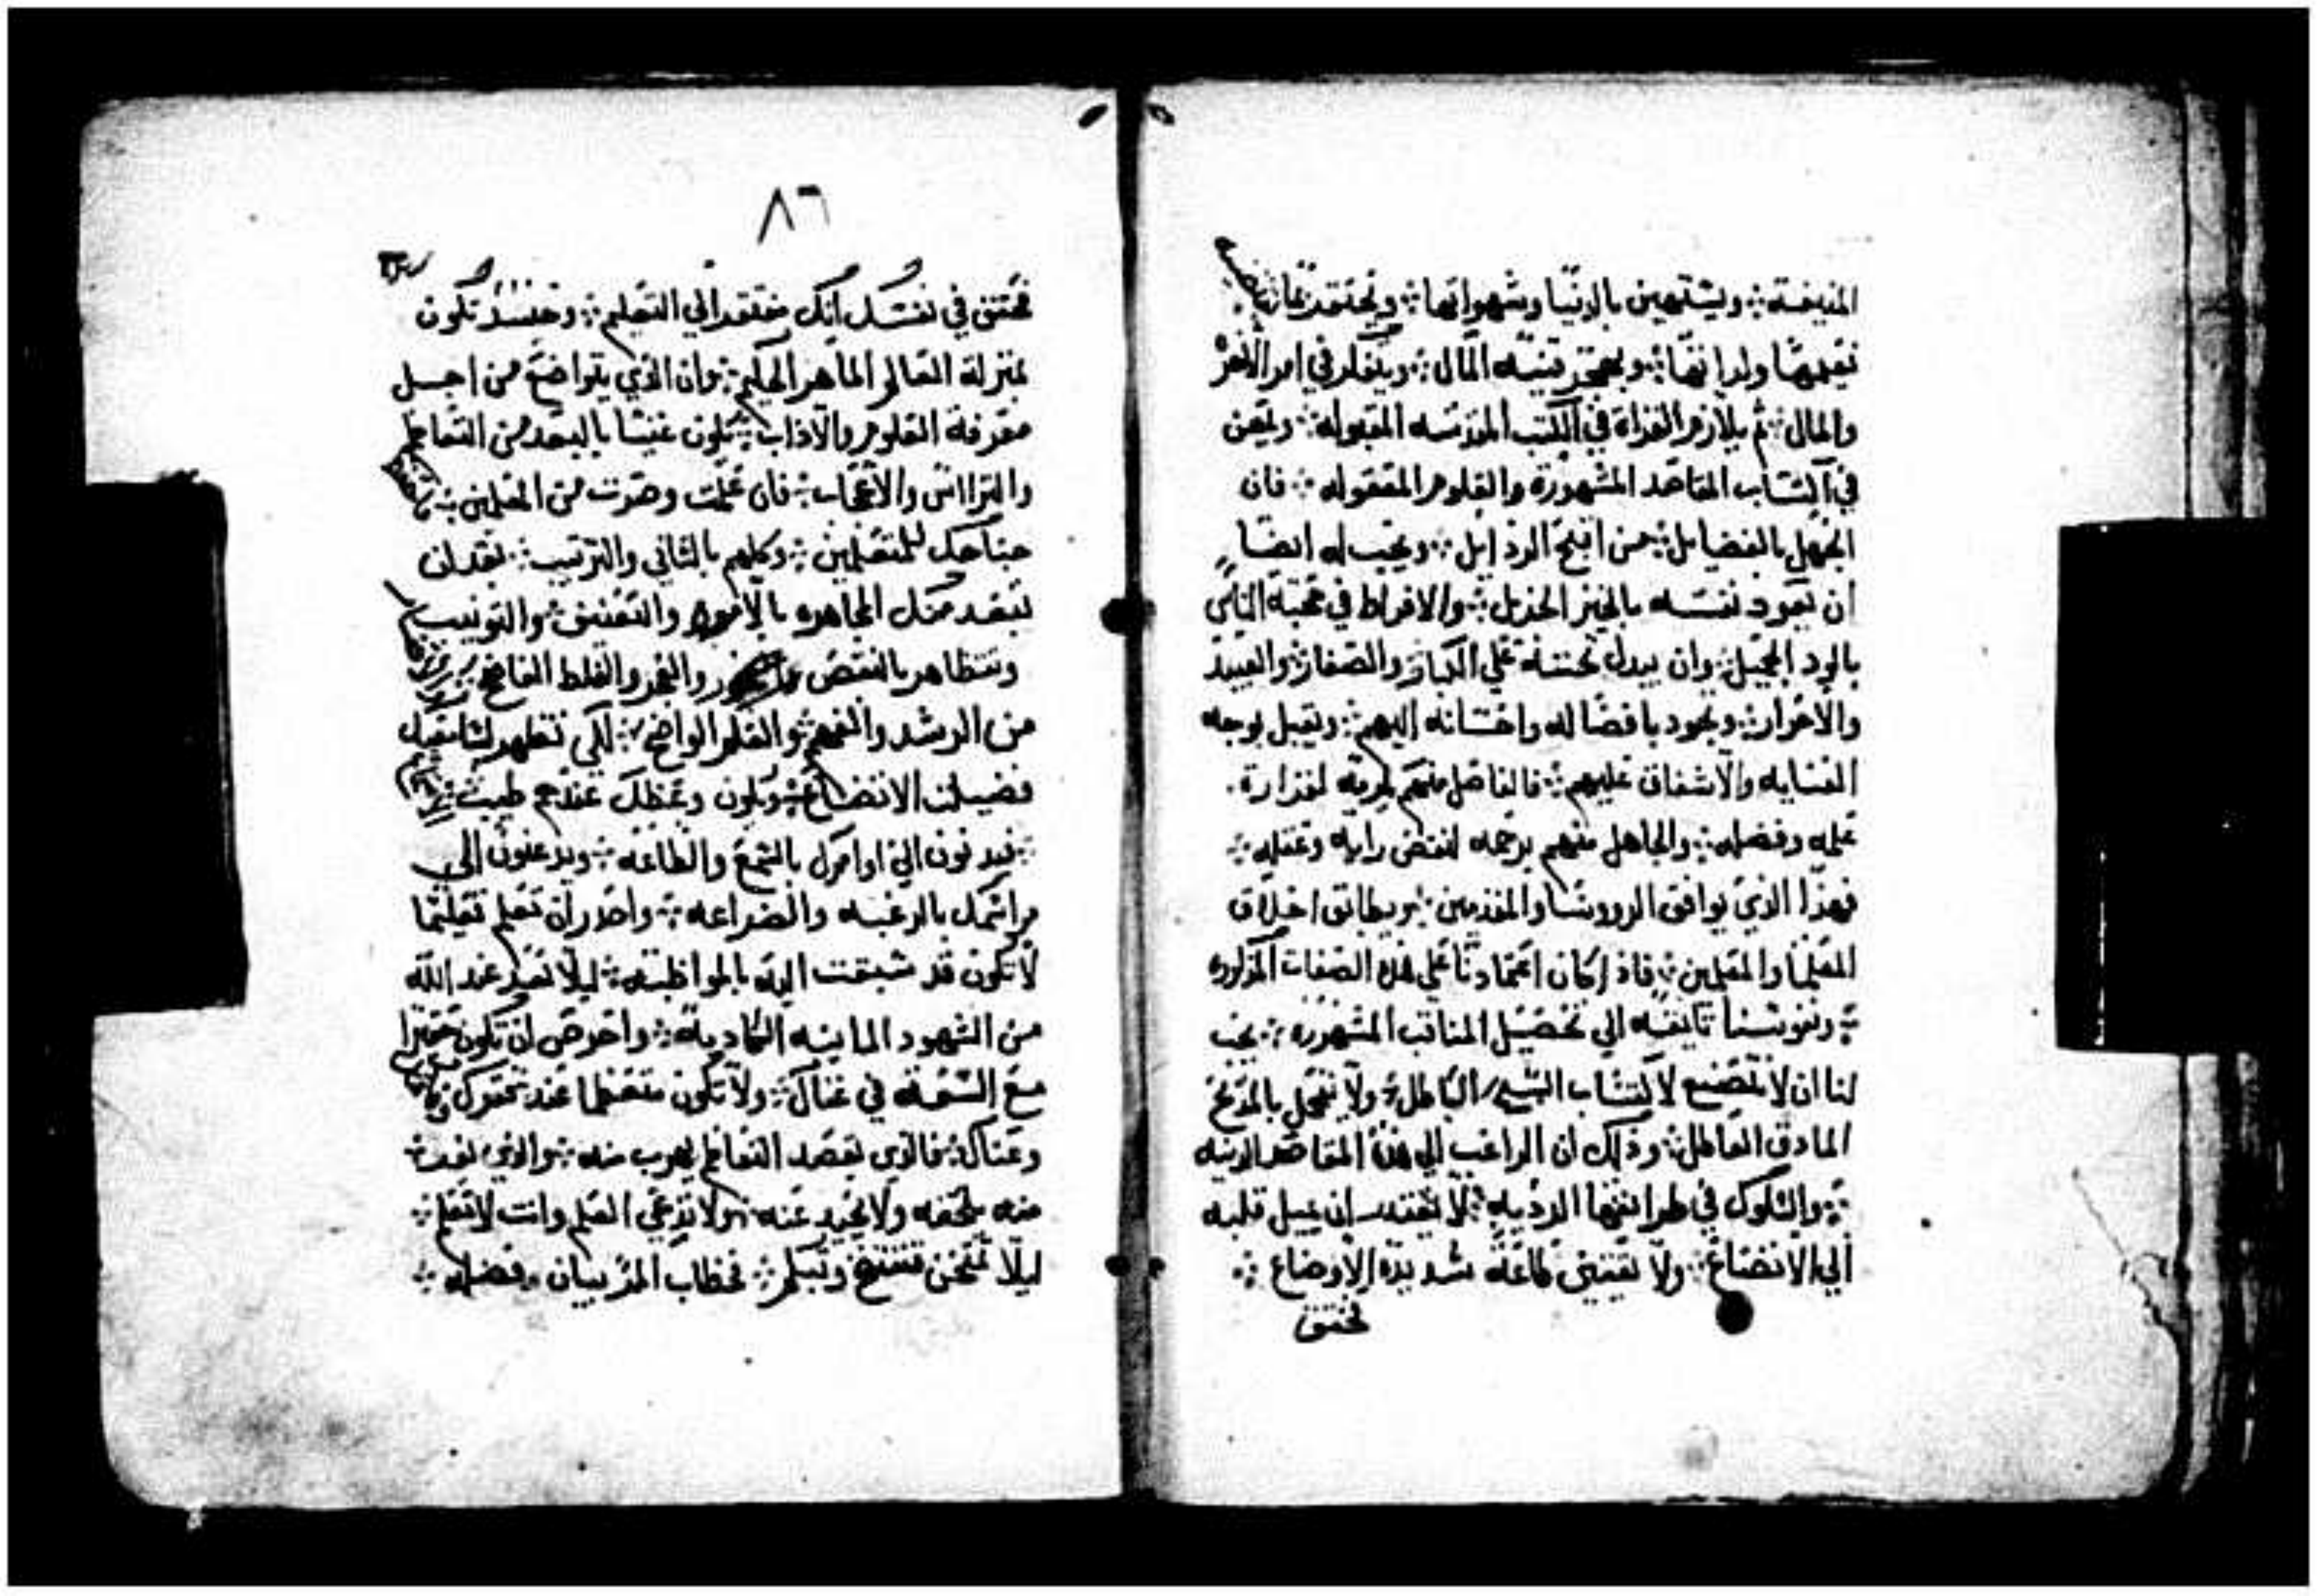 المنيفة ويستهين بالدنيا وشهواتها ويحتقر
نعيمها ولذاتها ويهجر قنيه المال ويفكر في امر الاخره
والمال ثم يلازم القراة في الكتب المقدسه المقبوله ويمعن
في اكتساب المقاصد المشهورة والعلوم المعقوله فان
الجهل بالفضايل من اقبح الرذايل ويجب له ايضا
ان يعود نفسه بالخير الجزيل والافراط في محبة الناس
بالود الجميل وان يبدل تحننه علي الكبار والصغار والعبيد
والاحرار ويجود بافضاله واحسانه اليهم ويقبل بوجه
العنايه والاشفاق عليهم فالفاضل منهم يكرمه لغزارة
علمه وفضله والجاهل منهم يرحمه لنقص رايه وعقله
فهذا الذي يوافق الرووسا والمقدمين ويطابق اخلاق
العلما والمعلمين فاذ كان اعتمادنا علي هذه الصفات المذكوره
ونفوسنا تايقه الي تحصيل المناقب المشهوره يجب
لنا ان لا نتصنع لاكتساب الشي الباطل ولا نتجمل بالمدح
المادق العاطل وذلك ان الراغب الي هذه المقاصد الدنيه
والسلوك في طرايقها الرديه لا يقتدر ان يميل قلبه
الي الاتضاع ولا يقتني طاعة شديدة الاوضاع
تحقق
٨٦
تحقق في نفسك انك مفتقر الي التعليم وحينيذ تكون
بمنزلة العالم الماهر الحكيم وان الذي يتواضع من اجل
معرفة العلوم والاداب يكون غنيا بالبعد من التعاظم
والتراس والاعجاب فان علمت وصرت من المعلمين
جناحك للمتعلمين وكلمهم بالتاني والترتيب بعد ان
تبعد منك المجاهره والتعنيف والتونيب
وتتظاهر بالنقص والعجز والغلط الفاضح
من الرشد والفهم والعلم الواضح لكي تظهر لتلاميذك
فضيلة الاتضاع ويكون وعظك عندهم طيب
فيدنون الي اوامرك بالسمع والطاعه ويدعنون الي
مراسمك بالرغبه والضراعه واحدر ان تعلم تعليما
لا تكون قد سبقت اليه بالمواظبه ليلا تعد عند الله
من الشهود الماينه الكادبة واحرص ان تكون
مع السعه في غناك ولا تكون متعظما عند
وعناك فالذي يقصد التعاظم يهرب منه والذي
منه يلحقه ولا يحيد عنه ولا تدعي العلم وانت لا تعلم
ليلا تمتحن فتفتضح وتبكم فخطاب المر بيان فضله